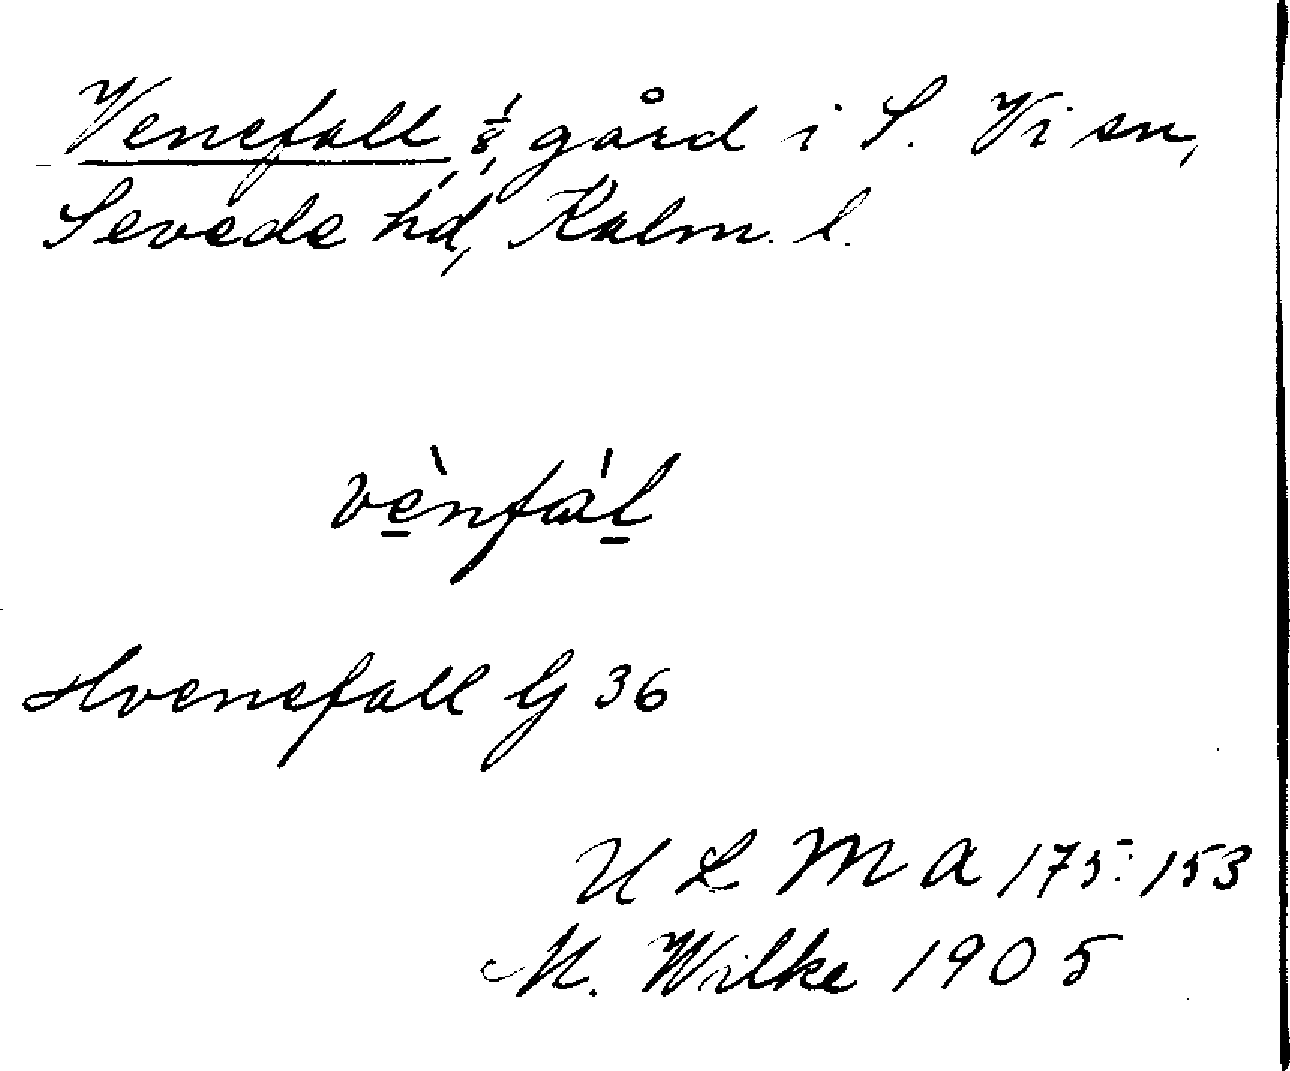 Venefall, 1/8 gård i S. Vi sn,
Sevede hd, Kalm. l.
vènfàl
Hvenefall G 36
U L M A 175:153
M. Wilke 1905